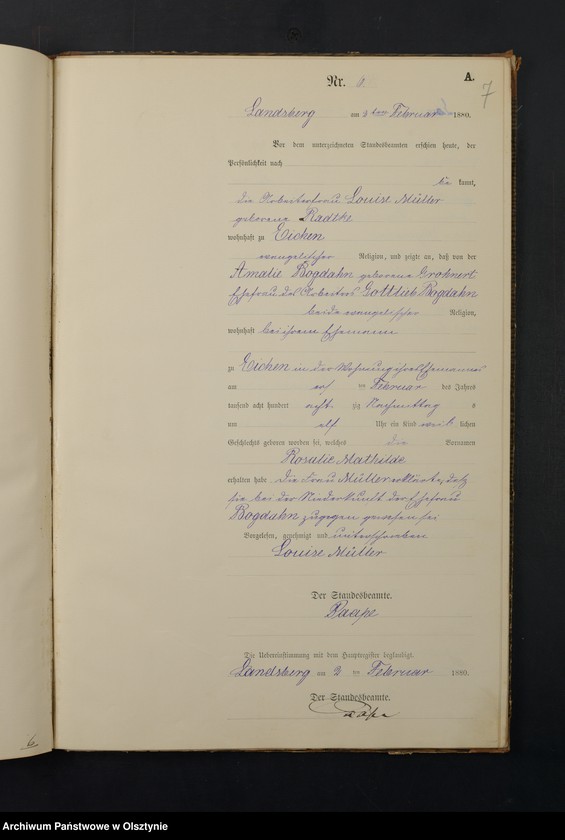 A.
7
Nr. 6.
Landsberg am 3ten Februar 1880.
Vor dem unterzeichneten Standesbeamten erschien heute, der
Persönlichkeit nach
be kannt,
die Arbeiterfrau Louise Müller
geborene Radtke
wohnhaft zu Eichen
evangelischer Religion, und zeigte an, daß von der
Amalie Bogdahn geborene Grohnert
Ehefrau des Arbeiters Gottlieb Bogdahn
beide evangelischer Religion,
wohnhaft bei ihrem Ehemanne
zu Eichen in der Wohnung ihres Ehemannes
am ten Februar des Jahres
tausend acht hundert acht zig Nachmittag s
um elf Uhr ein Kind weib lichen
Geschlechts geboren worden sei, welches die Vornamen
Rosalie Mathilde
erhalten habe. Die Frau Müller erklärte, daß
sie bei der Niederkunft der Ehefrau
Bogdahn zugegen gewesen sei
Vorgelesen, genehmigt und unterschrieben
Louise Müller
Der Standesbeamte.
Raape
Die Uebereinstimmung mit dem Hauptregister beglaubigt.
Landsberg am 3 ten Februar 1880.
Der Standesbeamte.
Raape
6
Archiwum Państwowe w Olsztynie